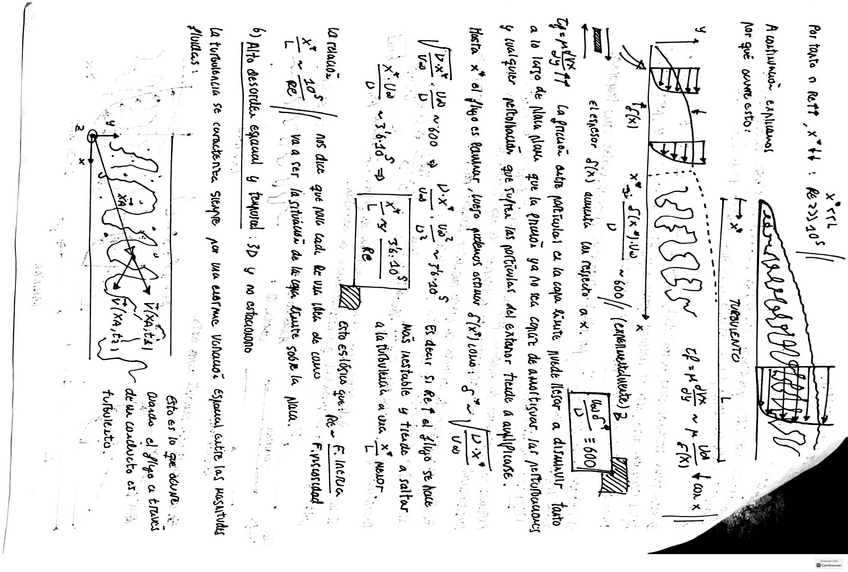 Por tanto ∩ Re↑↑, x*↓↓ : x* << L
Re >>> 10⁵
A continuación explicamos
por qué ocurre esto:
TURBULENTO
x*
L
y
δ(x)
x
x* ≈ δ(x*)·U∞ / ν ~ 600 // (experimentalmente)
τf = μ dVx/dy ~ μ U∞/δ(x) ↓ con x
El espesor δ(x) aumenta con respecto a x.
U∞δ/ν ≡ 600
τf = μ dVx/dy ↓↓ La fricción entre partículas en la capa límite puede llegar a disminuir tanto
a lo largo de placa plana que la fricción ya no sea capaz de amortiguar las perturbaciones
y cualquier perturbación que sufran las partículas del exterior tiende a amplificarse.
Hasta x* el flujo es laminar, luego podemos estimar δ(x*) como: δ* ~ √(ν·x*/U∞)
√(ν·x*/U∞) · U∞/ν ~ 600 ⇒ ν·x*/U∞ · U∞²/ν² ~ 36·10⁵
x*·U∞/ν ~ 3'6·10⁵ ⇒ x*/L ≈ 3'6·10⁵/Re
Es decir si Re↑ el flujo se hace
más inestable y tiende a saltar
a la turbulencia a una x*/L menor.
Esto es lógico que: Re ~ F. Inercia / F. viscosidad
La relación x*/L ~ 10⁵/Re // nos dice que para cada Re una idea de como
va a ser la situación de la capa límite sobre la placa.
b) Alto desorden espacial y temporal: 3D y no estacionario
La turbulencia se caracteriza siempre por una enorme variación espacial entre las magnitudes
fluidas:
y
z
x
XA
V(XA,t2)
V(XA,t1)
Esto es lo que ocurre
cuando el flujo a través
de un conducto es
turbulento.
Scanned with
CamScanner